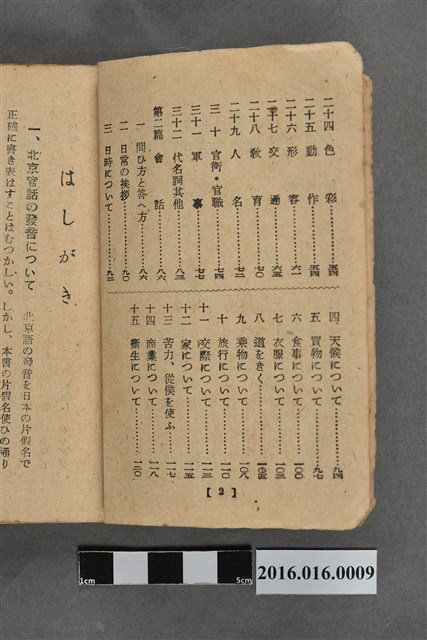 二十四 色彩……五四
二十五 動作……五四
二十六 形容……六一
二十七 交通……六五
二十八 教育……七〇
二十九 人名……七三
三十 官衙・官職……七四
三十一 軍事……七七
三十二 代名詞其他……八三
第二篇 會話……八六
一 問ひ方と答へ方……八六
二 日常の挨拶……九〇
三 日時について……九二
四 天候について……九四
五 買物について……九七
六 食事について……一〇〇
七 衣服について……一〇三
八 道をきく……一〇五
九 乘物について……一〇八
十 旅行について……一一〇
十一 交際について……一一三
十二 家について……一一五
十三 苦力、從僕を使ふ……一一七
十四 商業について……一一八
十五 衞生について……一二〇
【2】
はしがき
一、北京官話の發音について
北京語の發音を日本の片假名で
正確に書き表はすことはむつかしい。しかし、本書の片假名使ひの通り
1cm
5cm
2016.016.0009